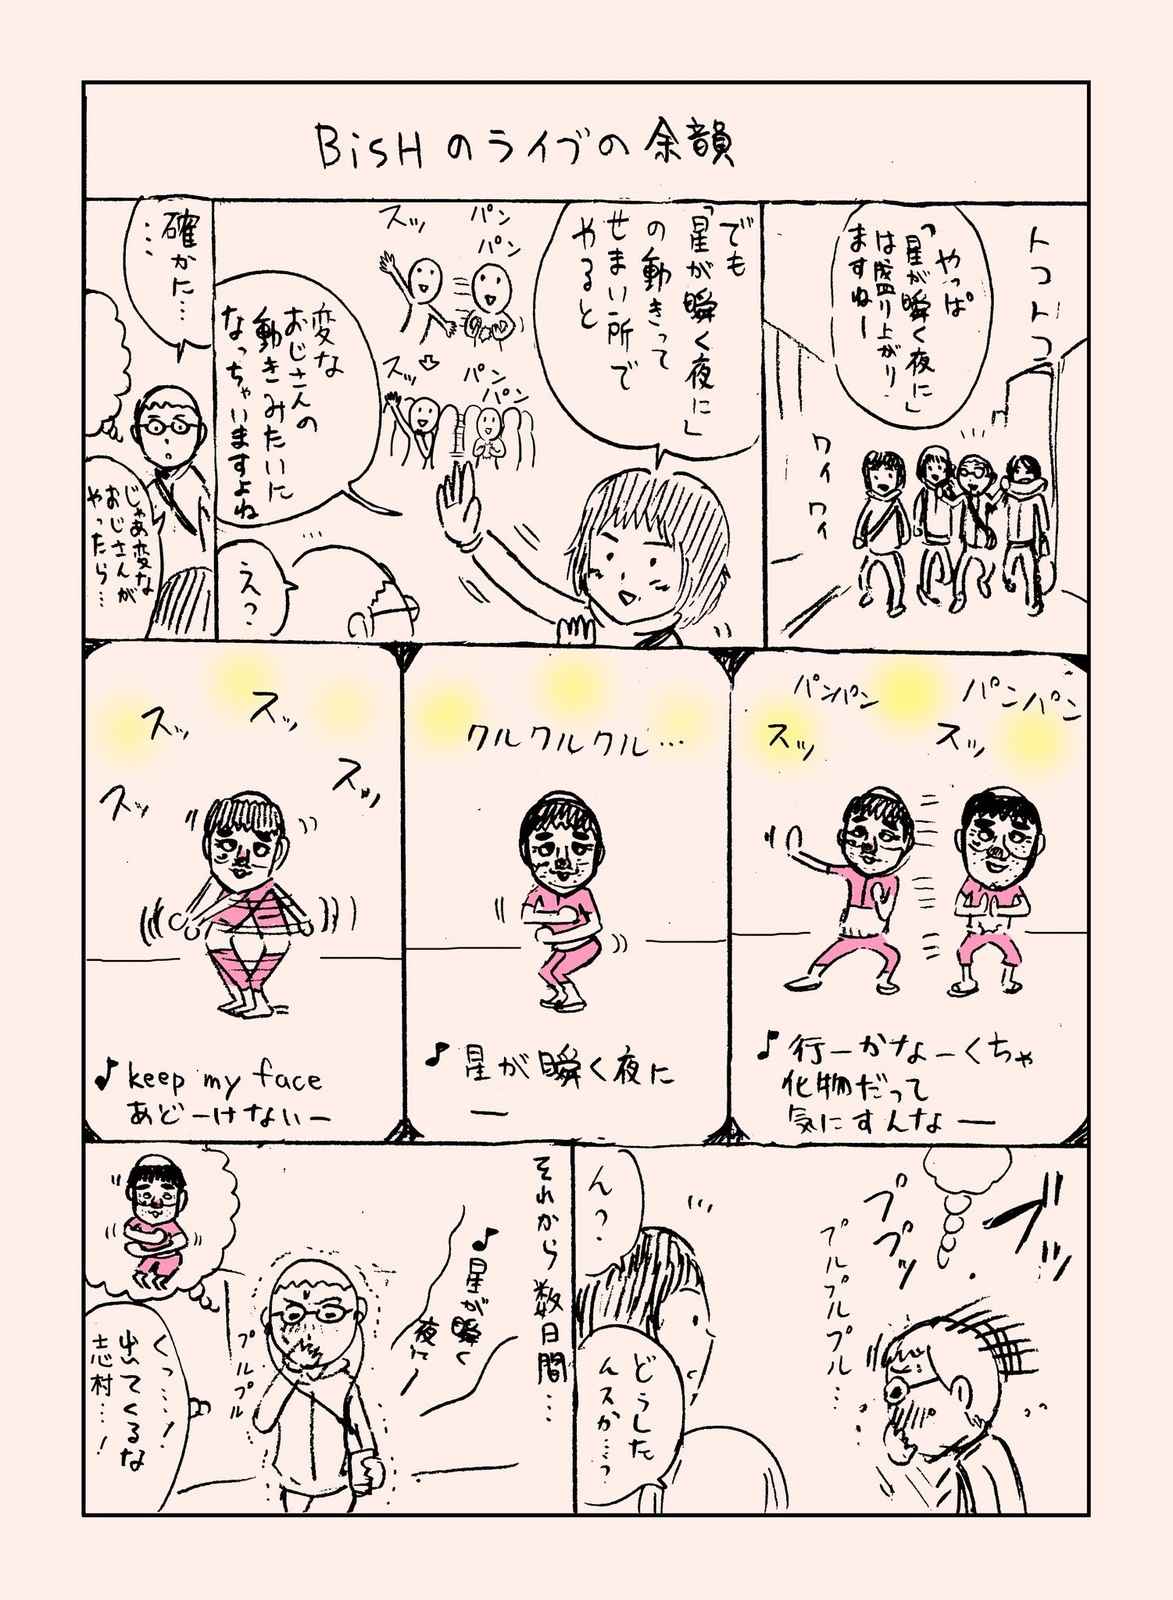 BiSHのライブの余韻
トコトコ
やっぱ
「星が瞬く夜に」
は盛り上がり
ますねー
ワイ
ワイ
でも
「星が瞬く夜に」
の動きって
せまい所で
やると
パン
パン
スッ
パン
パン
スッ
変な
おじさんの
動きみたいに
なっちゃいますよね
え?
確かに…
…
じゃあ変な
おじさんが
やったら…
パンパン
スッ
パンパン
スッ
♪行ーかなーくちゃ
化物だって
気にすんなー
クルクルクル…
♪星が瞬く夜に
ー
スッ
スッ
スッ
スッ
♪keep my face
あどーけないー
ブッ
ププッ
プルプルプル…
ん?
どうした
んスか…?
それから数日間…
♪星が瞬く
夜に
プルプル
くっ…!
出てくるな
志村…!